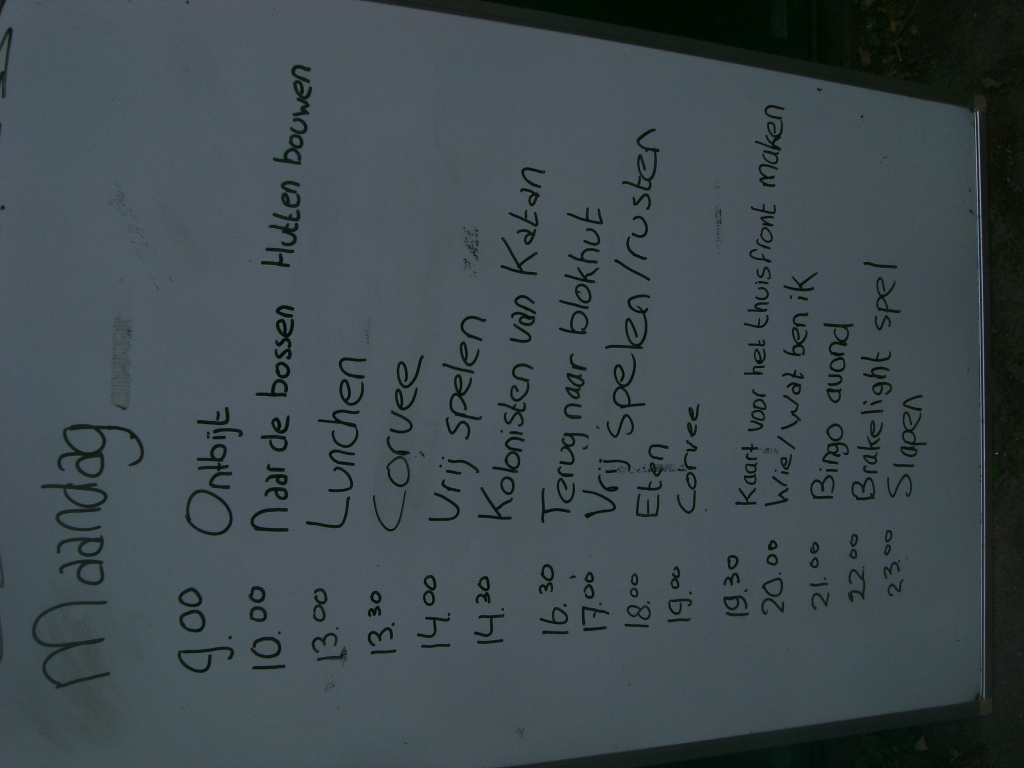 Maandag
9.00 Ontbijt
10.00 Naar de bossen Hutten bouwen
13.00 Lunchen
13.30 Corvee
14.00 Vrij spelen
14.30 Kolonisten van Katan
16.30 Terug naar blokhut
17.00 Vrij spelen/rusten
18.00 Eten
19.00 Corvee
19.30 Kaart voor het thuisfront maken
20.00 Wie/Wat ben ik
21.00 Bingo avond
22.00 Brakelight spel
23.00 Slapen